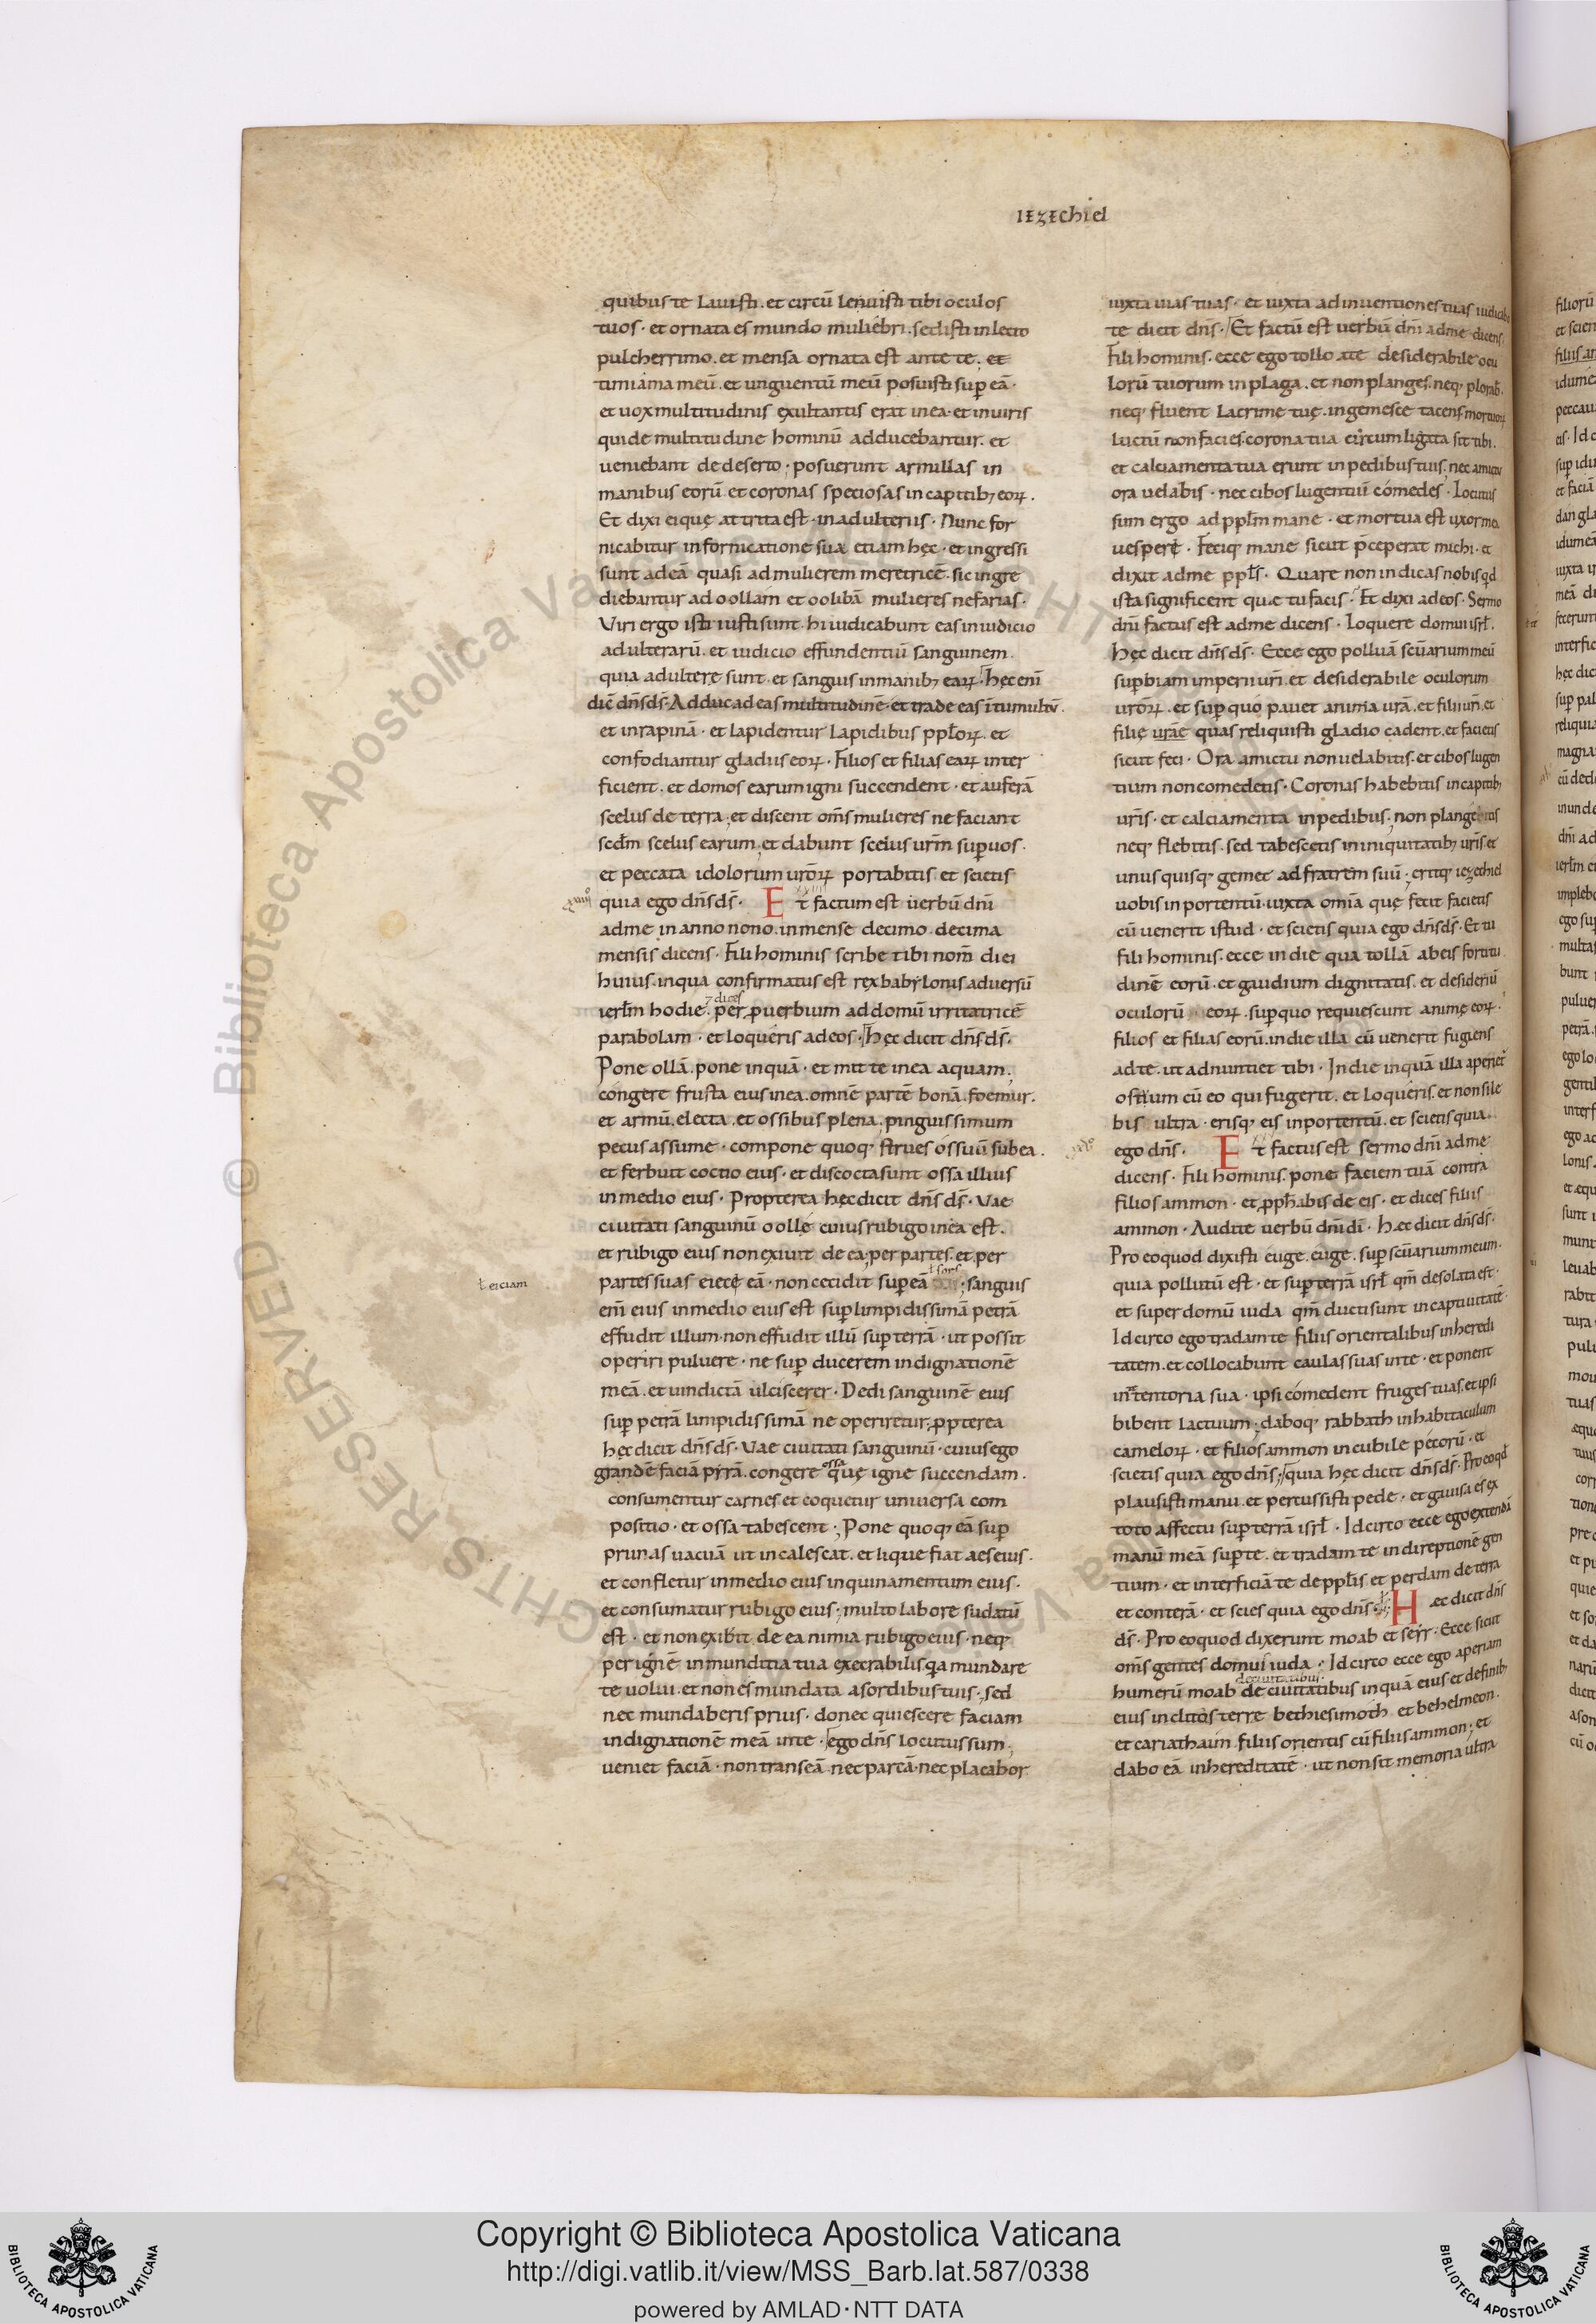 IEZEchiel
quibus te Lauisti. et circū leniuisti tibi oculos
tuos · et ornata es mundo muliebri. sedisti in lecto
pulcherrimo. et mensa ornata est ante te. et
timiama meū. et unguentū meū posuisti sup eā ·
et uox multitudinis exultantis erat in ea · et in uiris
qui de multitudine hominū adducebantur. et
ueniebant de deserto; posuerunt armillas in
manibus eorū. et coronas speciosas in capitibꝫ eoꝝ.
Et dixi ei quę attrita est · in adulteriis · Nunc for
nicabitur in fornicatione sua etiam hęc · et ingressi
sunt ad eā quasi ad mulierem meretricē. sic ingre
diebantur ad oollam et oolibā mulieres nefarias.
Viri ergo isti iusti sunt. hi iudicabunt eas in iudicio
adulterarū. et iudicio effundentiū sanguinem.
quia adultere sunt. et sanguis in manibꝫ eaꝝ. Hęc eni
dic̄ dn̄s ds̄ · Adduc ad eas multitudinē · et trade eas ī tumultū.
et in rapinā · et lapidentur Lapidibus ppl̄oꝝ. et
confodiantur gladiis eoꝝ · Filios et filias eaꝝ inter
ficient. et domos earum igni succendent · et auferā
scelus de terra; et discent om̄s mulieres ne faciant
scdm̄ scelus earum; et dabunt scelus urm̄ sup uos.
et peccata idolorum uroꝝ portabitis. et scietis
quia ego dn̄s ds̄ · Et factum est uerbū dn̄i
ad me in anno nono. in mense decimo. decima
mensis dicens · Fili hominis scribe tibi nom̄ diei
huius. in qua confirmatus est rex babylonis aduersū
ierl̄m hodie. per ꝓuerbium ad domū irritatricē
⁊ dices
parabolam · et loqueris ad eos · Hęc dicit dn̄s ds̄.
Pone ollā. pone inquā · et mitte in ea aquam;
congere frusta eius in ea. omnē partē bonā. foemur.
et armū. electa. et ossibus plena; pinguissimum
pecus assume · compone quoqꝫ strues ossuū sub ea.
et ferbuit coctio eius · et discocta sunt ossa illius
in medio eius · Propterea hęc dicit dn̄s ds̄ · Vae
ciuitati sanguinū oollę cuius rubigo in ea est.
et rubigo eius non exiuit de ea; per partes. et per
partes suas eiece eā · non cecidit sup eā sors; sanguis
ł eiciam
enī eius in medio eius est sup limpidissimā petrā
effudit illum · non effudit illū sup terrā · ut possit
operiri puluere · ne sup ducerem indignationē
meā. et uindictā ulciscerer · Dedi sanguinē eius
sup petrā limpidissimā ne operiretur; ꝓpterea
hęc dicit dn̄s ds̄ · Vae ciuitati sanguinū · cuius ego
grandē faciā pyrā. congere ossa quę igne succendam.
consumentur carnes et coquetur uniuersa com
positio · et ossa tabescent; Pone quoqꝫ eā sup
prunas uacuā ut incalescat. et liquefiat aes eius.
et confletur in medio eius inquinamentum eius.
et consumatur rubigo eius; multo labore sudatū
est · et non exibit de ea nimia rubigo eius · neqꝫ
per ignē inmunditia tua execrabilis qa mundare
te uolui. et non es mundata a sordibus tuis; sed
nec mundaberis prius · donec quiescere faciam
indignationē meā in te · ego dn̄s Locutus sum;
ueniet faciā · non transeā. nec parcā · nec placabor
iuxta uias tuas · et iuxta adinuentiones tuas iudicabo
te dicit dn̄s · Et factū est uerbū dn̄i ad me dicens.
Fili hominis. ecce ego tollo a te desiderabile ocu
lorū tuorum in plaga. et non planges. neqꝫ plorab̄.
neqꝫ fluent Lacrime tuę. ingemesce tacens mortuoꝝ
luctū non facies. corona tua circumligata sit tibi.
et calciamenta tua erunt in pedibus tuis; nec amictu
ora uelabis · nec cibos lugentiū comedes · Locutus
sum ergo ad ppl̄m mane · et mortua est uxor mea
uespere · Feciqꝫ mane sicut p̄ceperat michi · et
dixit ad me ppl̄s · Quare non indicas nobis qd
ista significent quæ tu facis · Et dixi ad eos · Sermo
dn̄i factus est ad me dicens · Loquere domui isrł.
Hęc dicit dn̄s ds̄ · Ecce ego polluā scūarium meū
supbiam imperii uri. et desiderabile oculorum
uroꝝ. et sup quo pauet anima urā. et filii uri. et
filię urae quas reliquisti gladio cadent. et facietis
sicut feci · Ora amictu non uelabitis. et cibos lugen
tium non comedetis · Coronas habebitis in capitibꝫ
uris · et calciamenta in pedibus; non plangetis
neqꝫ flebitis. sed tabescetis in iniquitatibꝫ uris et
unusquisqꝫ gemet ad fratrem suū; eritqꝫ iezechiel
uobis in portentū. iuxta omīa quę fecit facietis
cū uenerit istud · et scietis quia ego dn̄s ds̄ · Et tu
fili hominis. ecce in die qua tollā ab eis fortitu
dinē eorū. et gaudium dignitatis. et desideriū
oculorū eoꝝ. sup quo requiescunt animę eoꝝ.
filios et filias eorū. in die illa cū uenerit fugiens
ad te. ut adnuntiet tibi · In die inquā illa aperiet̄
os tuum cū eo qui fugerit. et loqueris. et non sile
bis ultra · erisqꝫ eis in portentū. et scietis quia
ego dn̄s · Et factus est sermo dn̄i ad me
dicens · Fili hominis. pone faciem tuā contra
filios ammon · et ꝓph̄abis de eis · et dices filiis
ammon · Audite uerbū dn̄i dī · Hæc dicit dn̄s ds̄.
Pro eo quod dixisti euge. euge. sup scūarium meum.
quia pollutū est · et sup terrā isrł qm̄ desolata est ·
et super domū iuda qm̄ ducti sunt in captiuitatē
Idcirco ego tradam te filiis orientalibus in heredi
tatem. et collocabunt caulas suas in te · et ponent
in te tentoria sua · ipsi comedent fruges tuas. et ipsi
bibent Lac tuum; daboqꝫ rabbath in habitaculum
cameloꝝ · et filios ammon in cubile pecorū · et
scietis quia ego dn̄s; quia hęc dicit dn̄s ds̄ · Pro eo qd
plausisti manu. et percussisti pede · et gauisa es ex
toto affectu sup terrā isrł · Idcirco ecce ego extendā
manū meā sup te. et tradam te in direptionē gen
tium · et interficiā te de ppl̄is et perdam de terra
et conterā · et scies quia ego dn̄s. Hæc dicit dn̄s
ds̄ · Pro eo quod dixerunt moab et seir · Ecce sicut
om̄s gentes domui iuda · Idcirco ecce ego aperiam
humerū moab de ciuitatibus inquā eius et de finibꝫ
eius inclitos terre bethiesimoth. et behelmeon.
et cariathaim. filiis orientis cū filiis ammon; et
dabo eā in hereditatē · ut non sit memoria ultra
Copyright © Biblioteca Apostolica Vaticana
http://digi.vatlib.it/view/MSS_Barb.lat.587/0338
powered by AMLAD·NTT DATA